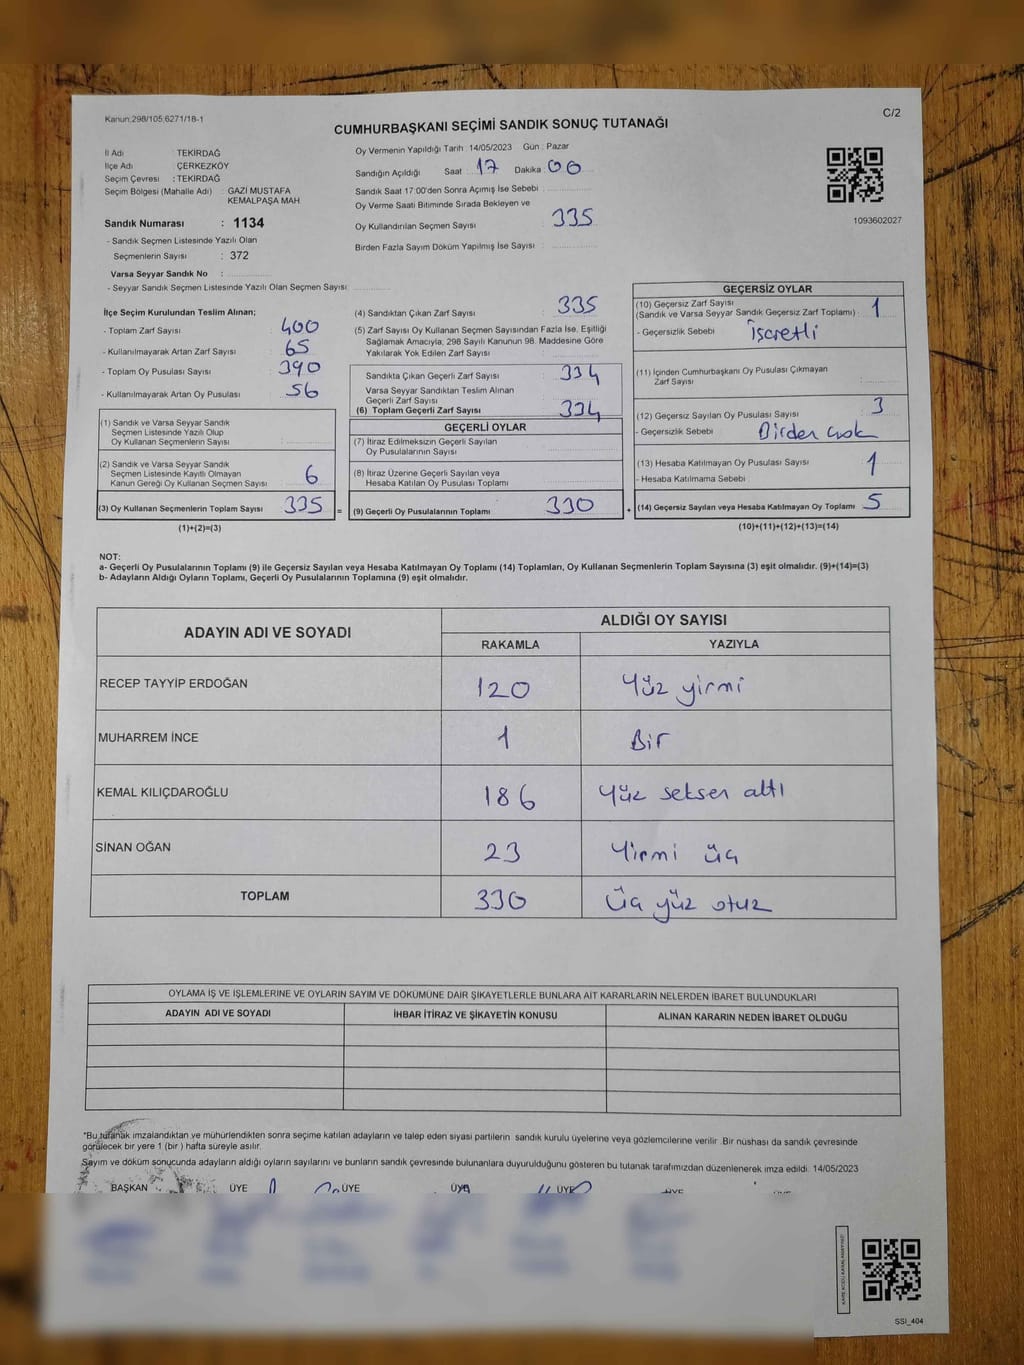 Kanun;298/105;6271/18-1
C/2
CUMHURBAŞKANI SEÇİMİ SANDIK SONUÇ TUTANAĞI
İl Adı : TEKİRDAĞ
İlçe Adı : ÇERKEZKÖY
Seçim Çevresi : TEKİRDAĞ
Seçim Bölgesi (Mahalle Adı) : GAZİ MUSTAFA
KEMALPAŞA MAH
Sandık Numarası : 1134
- Sandık Seçmen Listesinde Yazılı Olan
Seçmenlerin Sayısı : 372
Varsa Seyyar Sandık No :
- Seyyar Sandık Seçmen Listesinde Yazılı Olan Seçmen Sayısı:
Oy Vermenin Yapıldığı Tarih :14/05/2023 Gün : Pazar
Sandığın Açıldığı Saat : 17 Dakika : 00
Sandık Saat 17:00'den Sonra Açımış İse Sebebi :
Oy Verme Saati Bitiminde Sırada Bekleyen ve
Oy Kullandırılan Seçmen Sayısı : 335
Birden Fazla Sayım Döküm Yapılmış İse Sayısı :
1093602027
İlçe Seçim Kurulundan Teslim Alınan;
- Toplam Zarf Sayısı : 400
- Kullanılmayarak Artan Zarf Sayısı : 65
- Toplam Oy Pusulası Sayısı : 390
- Kullanılmayarak Artan Oy Pusulası : 56
(1) Sandık ve Varsa Seyyar Sandık
Seçmen Listesinde Yazılı Olup
Oy Kullanan Seçmenlerin Sayısı :
(2) Sandık ve Varsa Seyyar Sandık
Seçmen Listesinde Kayıtlı Olmayan
Kanun Gereği Oy Kullanan Seçmen Sayısı : 6
(3) Oy Kullanan Seçmenlerin Toplam Sayısı : 335
(1)+(2)=(3)
(4) Sandıktan Çıkan Zarf Sayısı : 335
(5) Zarf Sayısı Oy Kullanan Seçmen Sayısından Fazla İse, Eşitliği
Sağlamak Amacıyla, 298 Sayılı Kanunun 98. Maddesine Göre
Yakılarak Yok Edilen Zarf Sayısı :
Sandıkta Çıkan Geçerli Zarf Sayısı : 334
Varsa Seyyar Sandıktan Teslim Alınan
Geçerli Zarf Sayısı :
(6) Toplam Geçerli Zarf Sayısı : 334
GEÇERLİ OYLAR
(7) İtiraz Edilmeksizin Geçerli Sayılan
Oy Pusulalarının Sayısı :
(8) İtiraz Üzerine Geçerli Sayılan veya
Hesaba Katılan Oy Pusulası Toplamı :
= (9) Geçerli Oy Pusulalarının Toplamı : 330
GEÇERSİZ OYLAR
(10) Geçersiz Zarf Sayısı
(Sandık ve Varsa Seyyar Sandık Geçersiz Zarf Toplamı) : 1
- Geçersizlik Sebebi : İşaretli
(11) İçinden Cumhurbaşkanı Oy Pusulası Çıkmayan
Zarf Sayısı :
(12) Geçersiz Sayılan Oy Pusulası Sayısı : 3
- Geçersizlik Sebebi : Birden çok
(13) Hesaba Katılmayan Oy Pusulası Sayısı : 1
- Hesaba Katılmama Sebebi :
+ (14) Geçersiz Sayılan veya Hesaba Katılmayan Oy Toplamı : 5
(10)+(11)+(12)+(13)=(14)
NOT:
a- Geçerli Oy Pusulalarının Toplamı (9) ile Geçersiz Sayılan veya Hesaba Katılmayan Oy Toplamı (14) Toplamları, Oy Kullanan Seçmenlerin Toplam Sayısına (3) eşit olmalıdır. (9)+(14)=(3)
b- Adayların Aldığı Oyların Toplamı, Geçerli Oy Pusulalarının Toplamına (9) eşit olmalıdır.
ADAYIN ADI VE SOYADI ALDIĞI OY SAYISI
RAKAMLA YAZIYLA
RECEP TAYYİP ERDOĞAN 120 Yüz yirmi
MUHARREM İNCE 1 Bir
KEMAL KILIÇDAROĞLU 186 Yüz seksen altı
SİNAN OĞAN 23 Yirmi üç
TOPLAM 330 Üç yüz otuz
OYLAMA İŞ VE İŞLEMLERİNE VE OYLARIN SAYIM VE DÖKÜMÜNE DAİR ŞİKAYETLERLE BUNLARA AİT KARARLARIN NELERDEN İBARET BULUNDUKLARI
ADAYIN ADI VE SOYADI İHBAR İTİRAZ VE ŞİKAYETİN KONUSU ALINAN KARARIN NEDEN İBARET OLDUĞU
*Bu tutanak imzalandıktan ve mühürlendikten sonra seçime katılan adayların ve talep eden siyasi partilerin sandık kurulu üyelerine veya gözlemcilerine verilir .Bir nüshası da sandık çevresinde
görülecek bir yere 1 (bir ) hafta süreyle asılır.
Sayım ve döküm sonucunda adayların aldığı oyların sayılarını ve bunların sandık çevresinde bulunanlara duyurulduğunu gösteren bu tutanak tarafımızdan düzenlenerek imza edildi. 14/05/2023
BAŞKAN ÜYE ÜYE ÜYE ÜYE ÜYE ÜYE
SSI_404